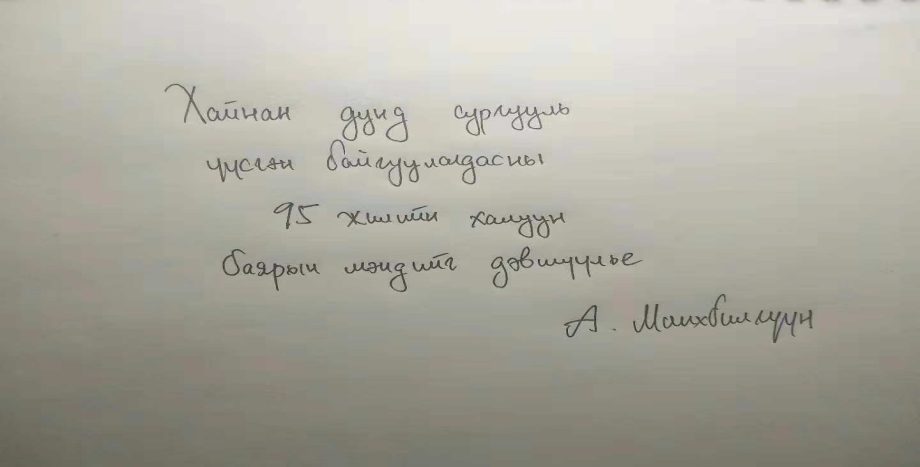 Хайнан дунд сургууль
үүсгэн байгуулагдасны
95 жилийн халуун
баярын мэндийг дэвшүүлье
А. Мөнхбилгүүн